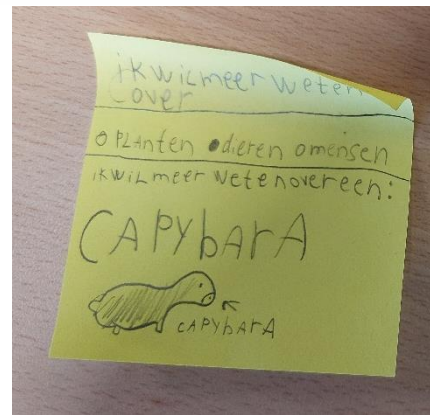 ik wil meer weten
over
o PLAnten • dieren o mensen
ik wiL meer weten over een:
CAPYbArA
CAPYbArA